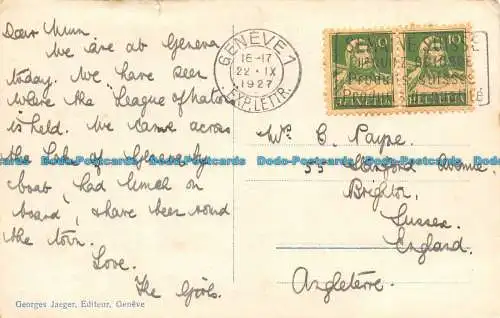 Dear Mum.
We are at Geneva
today. We have seen
where the "League of Nations
is held. We came across
the Lake of Geneva by
boat, had lunch on
board, & have been round
the town.
Love.
The Girls.
Georges Jaeger, Editeur, Genève
GENÈVE 1
16-17
22.IX
1927
EXP.LETTR.
10 10
SEMAINE SUISSE
PRODUITS SUISSES
HELVETIA HELVETIA
C. Payne.
55 Stanford Avenue.
Brighton,
Sussex,
England.
Angleterre.
Dodo-Postcards Dodo-Postcards Dodo-Postcards Dodo-Postcards Dodo-Postcards